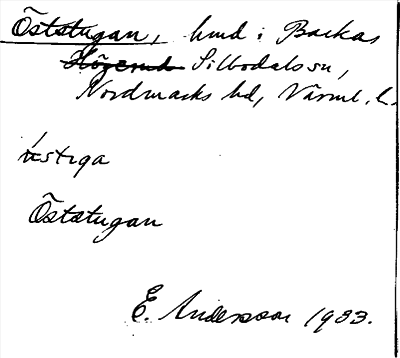 Öststugan, hmd i Backas
Högerud Silbodals sn,
Nordmarks hd, Värml. l.
östiga
Öststugan
E. Andersson 1933.